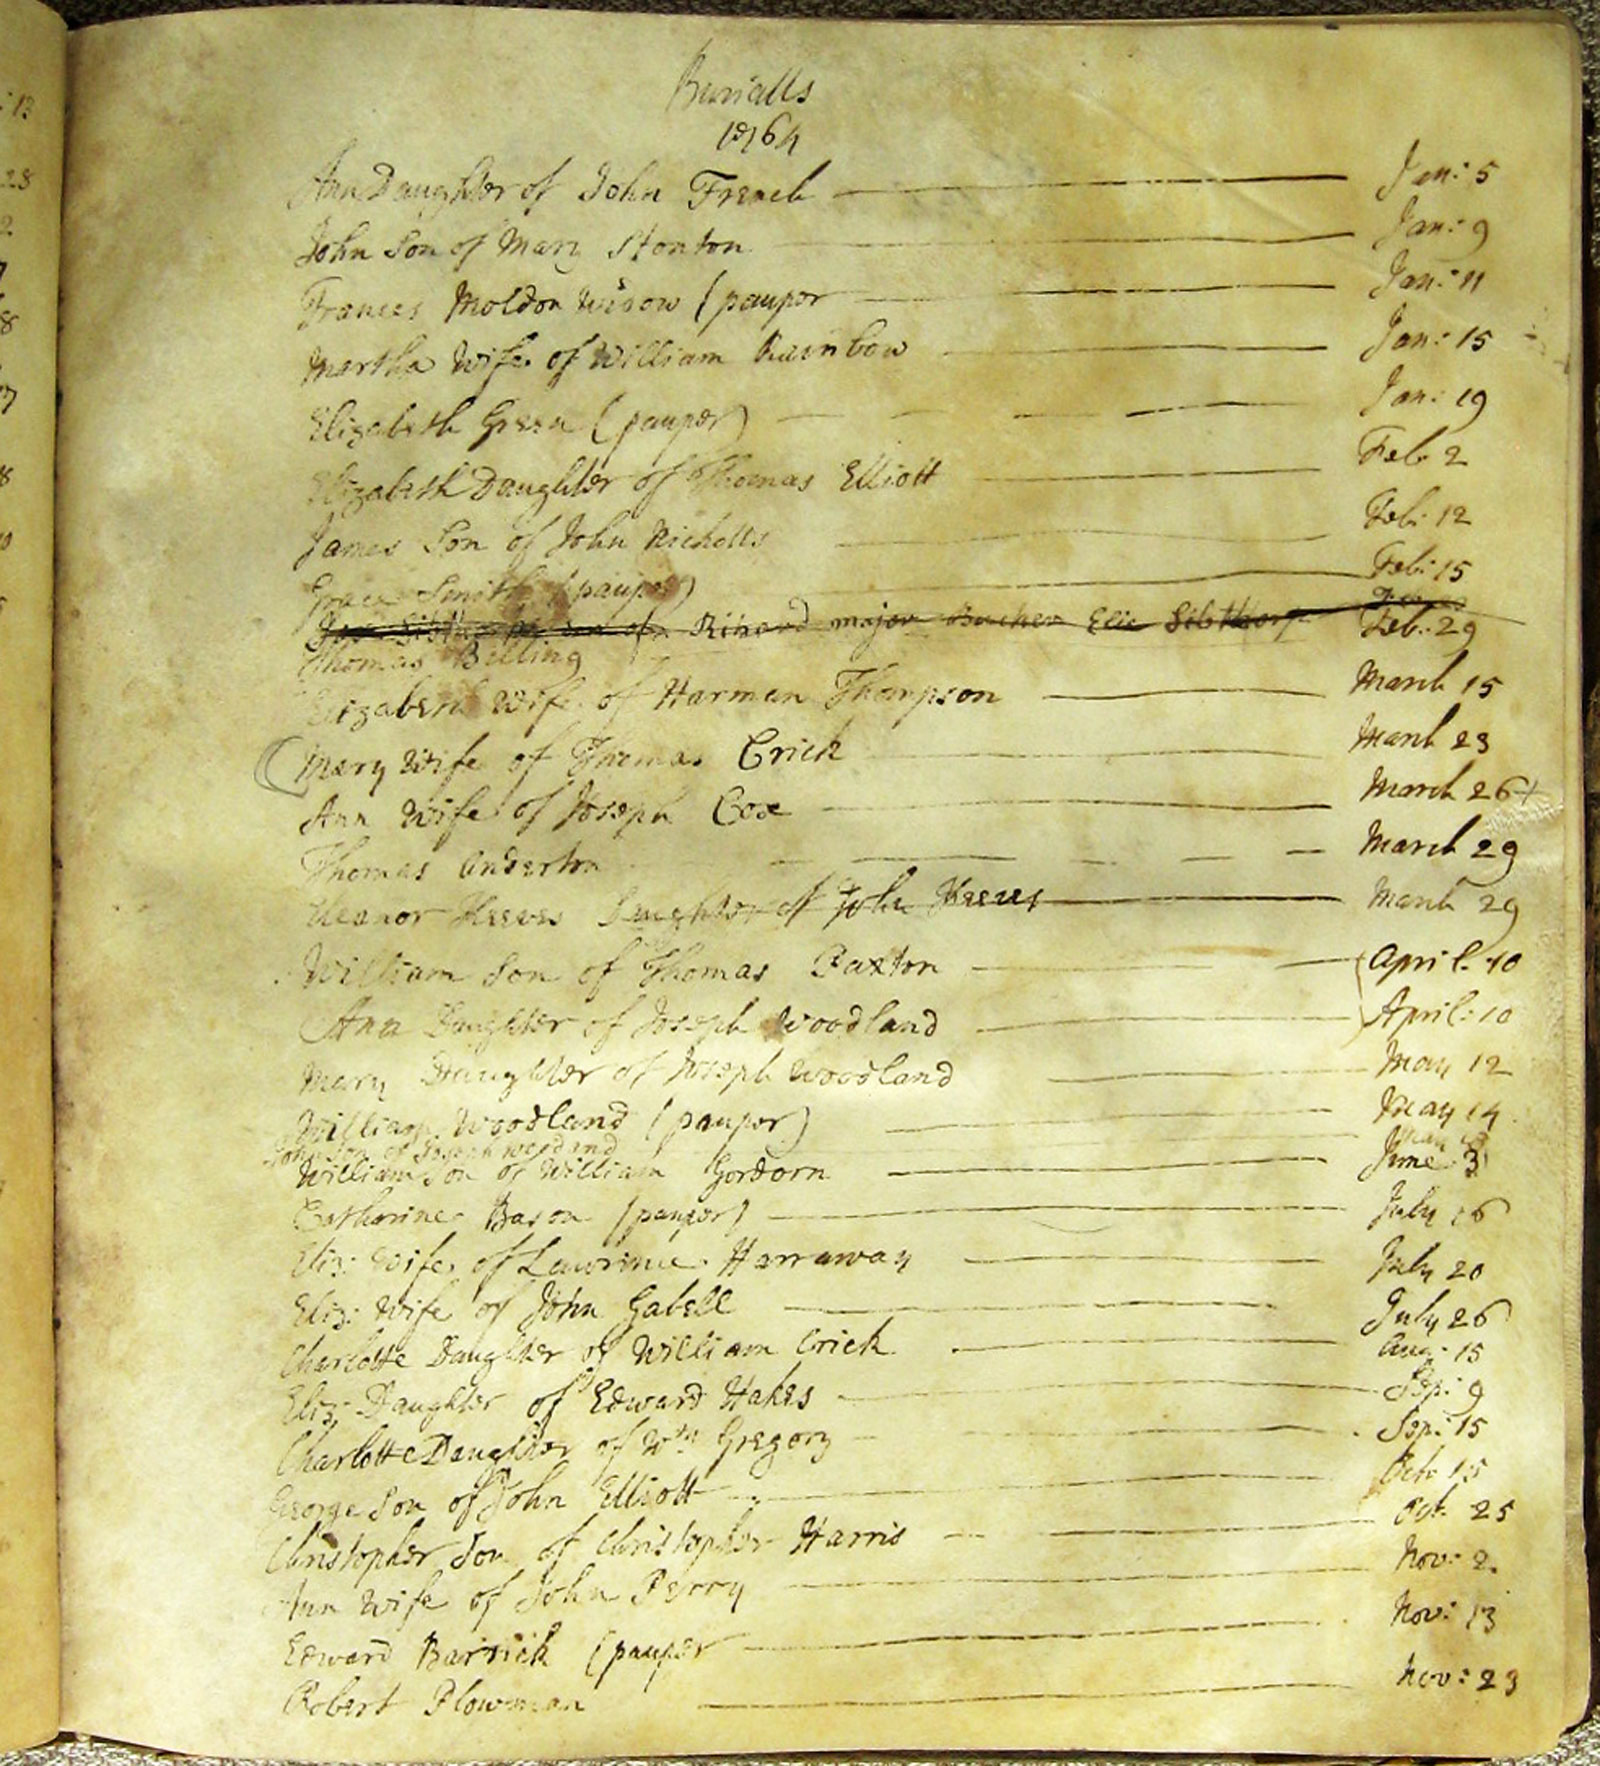 Burialls
1764
Ann Daughter of John French Jan: 5
John Son of Mary Stonton Jan: 9
Frances Moldon Widow (pauper Jan: 11
Martha Wife of William Rainbow Jan: 15
Elizabeth Green (pauper) Jan: 19
Elizabeth Daughter of Thomas Elliott Feb: 2
James Son of John Richetts Feb: 12
Grace Smith (pauper) Feb: 15
Richard major Elie Sibthorp
Thomas Billing Feb: 29
Elizabeth Wife of Harman Thompson March 15
Mary Wife of Thomas Crick March 23
Ann Wife of Joseph Cox March 26
Thomas Anderton March 29
Eleanor Keeves Daughter of John Keeves March 29
William Son of Thomas Paxton April 10
Ann Daughter of Joseph Woodland April: 10
Mary Daughter of Joseph Woodland May 12
William Woodland (pauper) May 14
John Son of Joseph Woodland May
William Son of William Gordorn June 3
Catharine Bason (pauper) July 16
Eliz: Wife of Lawrence Harraway July 20
Eliz: Wife of John Gabell July 26
Charlotte Daughter of William Crick Aug: 15
Eliz: Daughter of Edward Hakes Sep: 9
Charlotte Daughter of Wm Gregory Sep: 15
George Son of John Elliott Oct: 15
Christopher Son of Christopher Harris Oct: 25
Ann Wife of John Perry Nov: 2
Edward Barrick (pauper Nov: 13
Robert Plowman Nov: 23